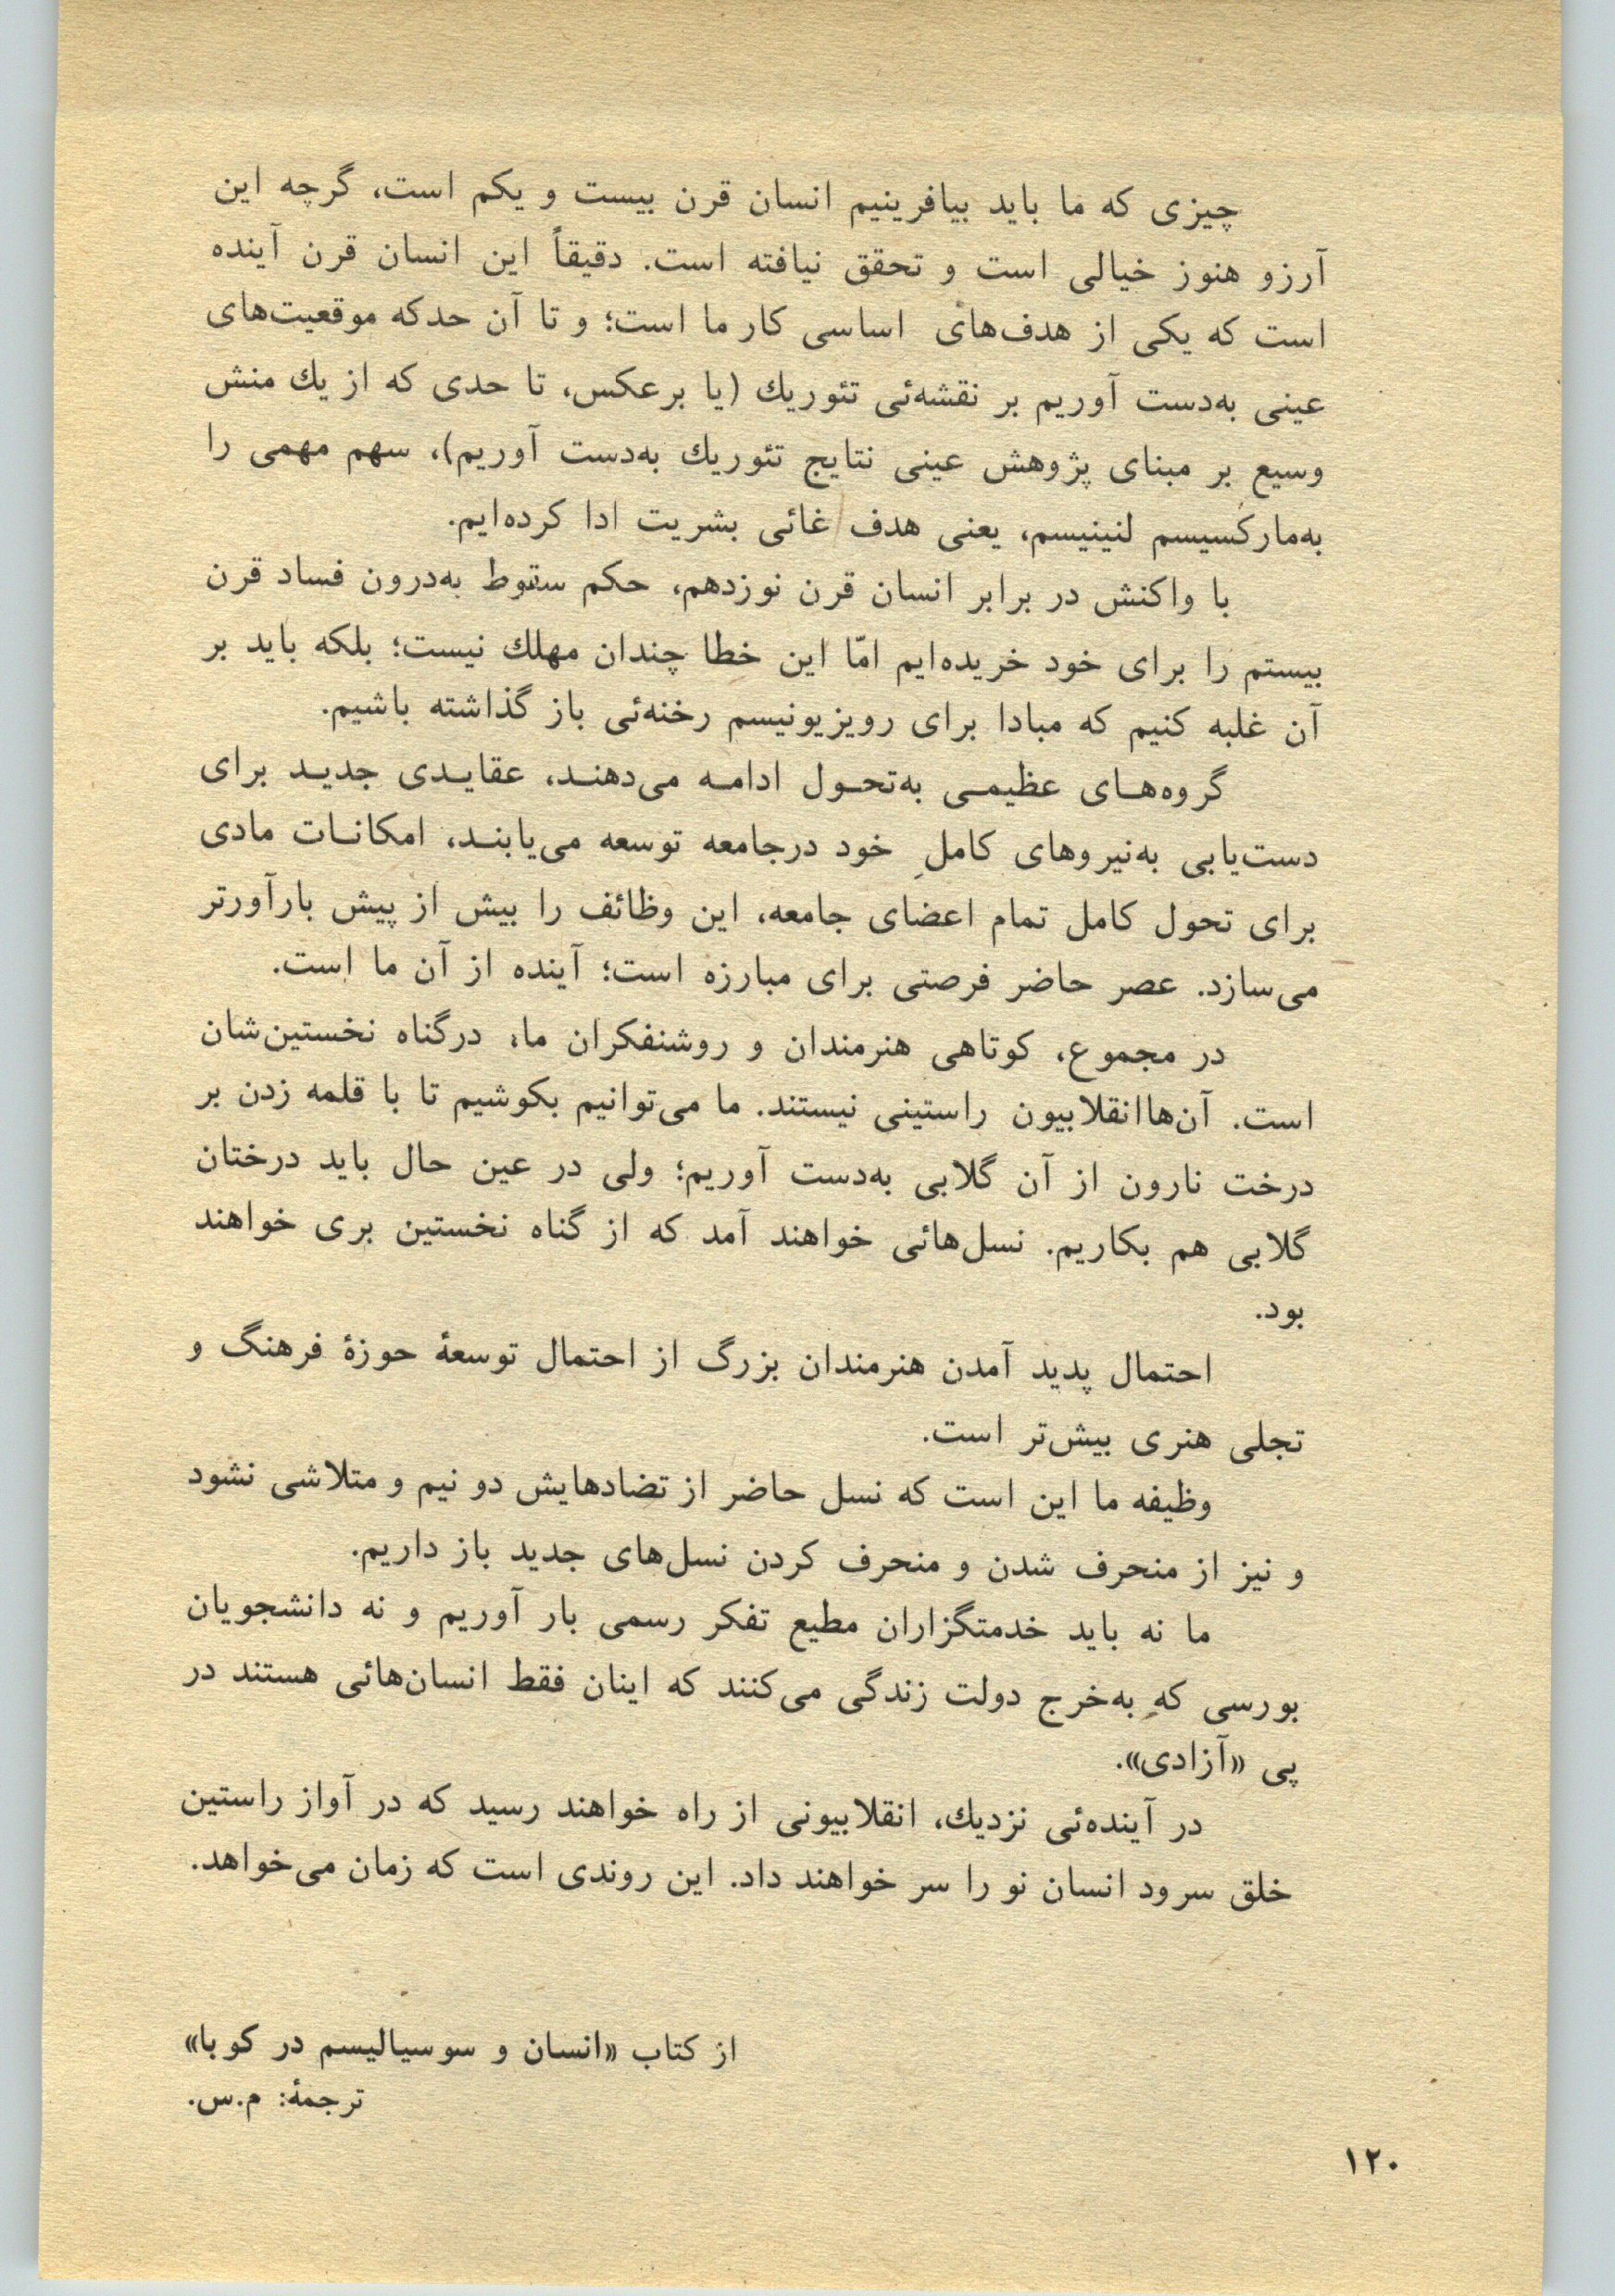 چیزی که ما باید بیافرینیم انسان قرن بیست و یکم است، گرچه این
آرزو هنوز خیالی است و تحقق نیافته است. دقیقاً این انسان قرن آینده
است که یکی از هدف‌های اساسی کار ما است؛ و تا آن حدکه موقعیت‌های
عینی به‌دست آوریم بر نقشه‌ئی تئوریك (یا برعکس، تا حدی که از یك منش
وسیع بر مبنای پژوهش عینی نتایج تئوریك به‌دست آوریم)، سهم مهمی را
به‌مارکسیسم لنینیسم، یعنی هدف غائی بشریت ادا کرده‌ایم.
با واکنش در برابر انسان قرن نوزدهم، حکم سقوط به‌درون فساد قرن
بیستم را برای خود خریده‌ایم امّا این خطا چندان مهلك نیست؛ بلکه باید بر
آن غلبه کنیم که مبادا برای رویزیونیسم رخنه‌ئی باز گذاشته باشیم.
گروه‌هـای عظیمـی به‌تحـول ادامـه می‌دهنـد، عقایـدی جدیـد برای
دست‌یابی به‌نیروهای کاملِ خود درجامعه توسعه می‌یابنـد، امکانـات مادی
برای تحول کامل تمام اعضای جامعه، این وظائف را بیش از پیش بارآورتر
می‌سازد. عصر حاضر فرصتی برای مبارزه است؛ آینده از آن ما است.
در مجموع، کوتاهی هنرمندان و روشنفکران ما، درگناه نخستین‌شان
است. آن‌هاانقلابیون راستینی نیستند. ما می‌توانیم بکوشیم تا با قلمه زدن بر
درخت نارون از آن گلابی به‌دست آوریم؛ ولی در عین حال باید درختان
گلابی هم بکاریم. نسل‌هائی خواهند آمد که از گناه نخستین بری خواهند
بود.
احتمال پدید آمدن هنرمندان بزرگ از احتمال توسعهٔ حوزهٔ فرهنگ و
تجلی هنری بیش‌تر است.
وظیفه ما این است که نسل حاضر از تضادهایش دو نیم و متلاشی نشود
و نیز از منحرف شدن و منحرف کردن نسل‌های جدید باز داریم.
ما نه باید خدمتگزاران مطیع تفکر رسمی بار آوریم و نه دانشجویان
بورسی که به‌خرج دولت زندگی می‌کنند که اینان فقط انسان‌هائی هستند در
پی «آزادی».
در آینده‌ئی نزدیك، انقلابیونی از راه خواهند رسید که در آواز راستین
خلق سرود انسان نو را سر خواهند داد. این روندی است که زمان می‌خواهد.
از کتاب «انسان و سوسیالیسم در کوبا»
ترجمهٔ: م.س.
۱۲۰